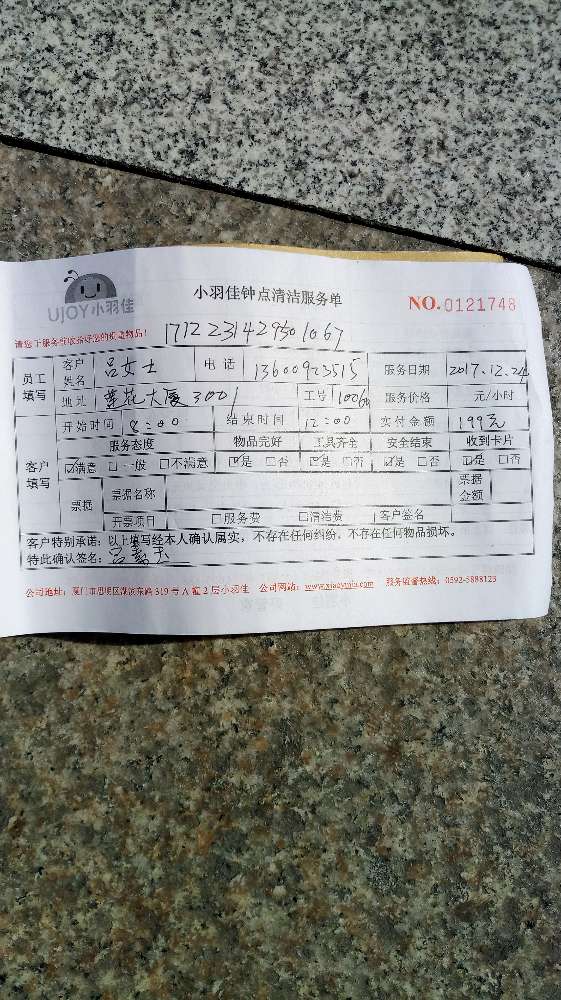 UJOY小羽佳
小羽佳钟点清洁服务单
NO.0121748
请您于服务后收拾好您的贵重物品!
1712231429301067
员工填写 客户姓名 吕女士 电话 13600923515 服务日期 2017.12.24
地址 莲花大厦3001 工号 服务价格 元/小时
开始时间 8:00 结束时间 12:00 实付金额 199元
客户填写 服务态度 物品完好 工具齐全 安全结束 收到卡片
☑满意 □一般 □不满意 ☑是 □否 ☑是 □否 ☑是 □否 ☑是 □否
票据 票据名称 票据金额
开票项目 □服务费 □清洁费 客户签名
客户特别承诺:以上填写经本人确认属实,不存在任何纠纷,不存在任何物品损坏。
特此确认签名:吕
公司地址:厦门市思明区湖滨东路319号A幢2层小羽佳 公司网站:www.xiaoyujia.com 服务监督热线:0592-5888123